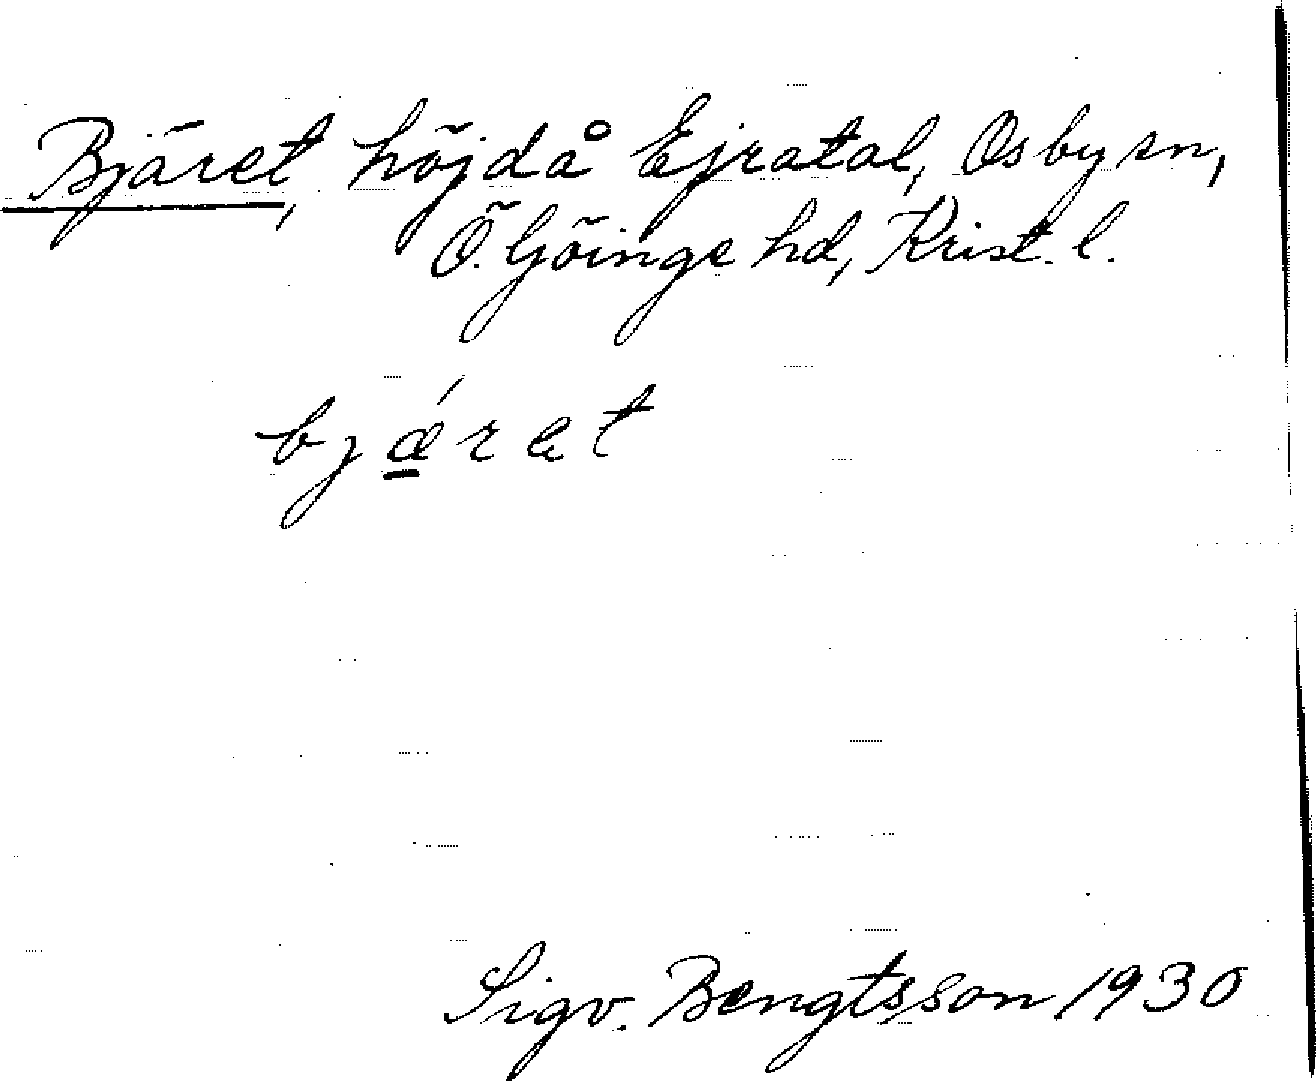 Bjäret, höjd å Ejratal, Osby sn,
Ö. Göinge hd, Krist. l.
bjǽ̲ret
Sigv. Bengtsson 1930